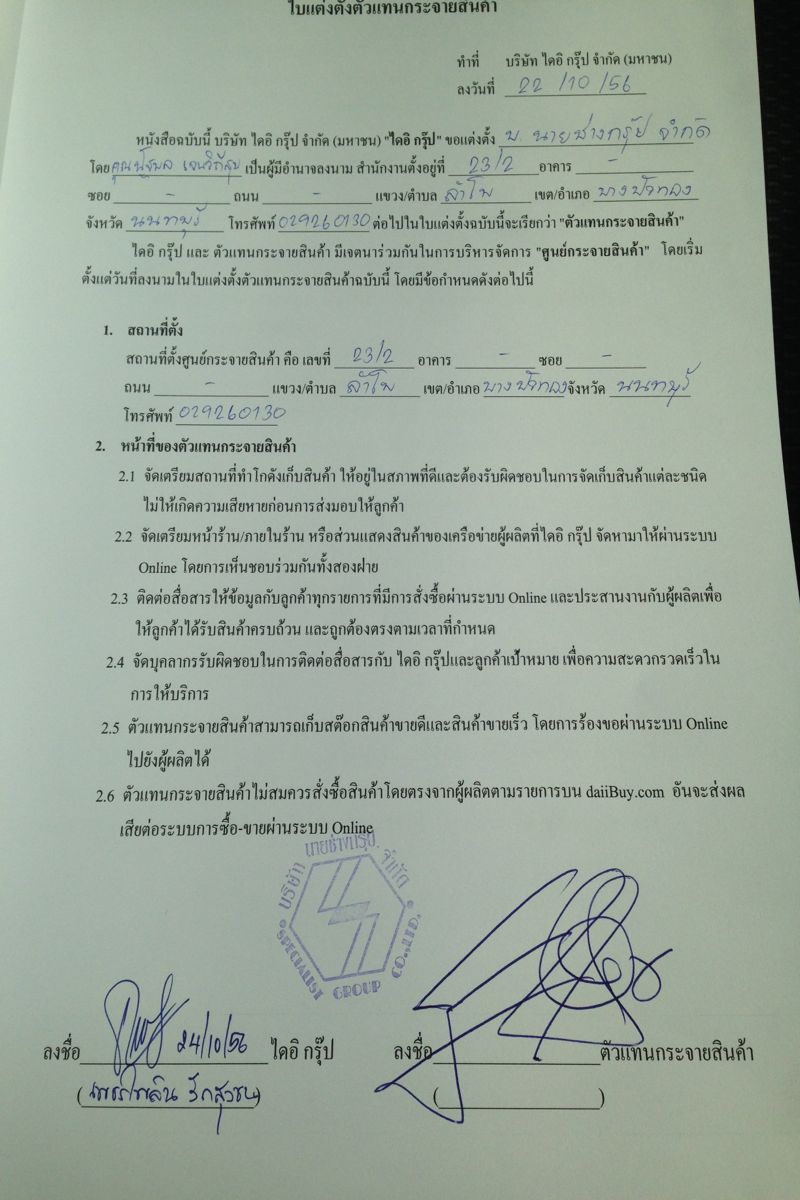 ใบแต่งตั้งตัวแทนกระจายสินค้า
ทำที่ บริษัท ไดอิ กรุ๊ป จำกัด (มหาชน)
ลงวันที่ 22 /10 /56
หนังสือฉบับนี้ บริษัท ไดอิ กรุ๊ป จำกัด (มหาชน) "ไดอิ กรุ๊ป" ขอแต่งตั้ง บ. นายช่างกรุ๊ป จำกัด
โดย คุณ เป็นผู้มีอำนาจลงนาม สำนักงานตั้งอยู่ที่ 23/2 อาคาร -
ซอย - ถนน - แขวง/ตำบล ลำโพ เขต/อำเภอ บางบัวทอง
จังหวัด นนทบุรี โทรศัพท์ 029260130 ต่อไปในใบแต่งตั้งฉบับนี้จะเรียกว่า "ตัวแทนกระจายสินค้า"
ไดอิ กรุ๊ป และ ตัวแทนกระจายสินค้า มีเจตนาร่วมกันในการบริหารจัดการ "ศูนย์กระจายสินค้า" โดยเริ่ม
ตั้งแต่วันที่ลงนามในใบแต่งตั้งตัวแทนกระจายสินค้าฉบับนี้ โดยมีข้อกำหนดดังต่อไปนี้
1. สถานที่ตั้ง
สถานที่ตั้งศูนย์กระจายสินค้า คือ เลขที่ 23/2 อาคาร - ซอย -
ถนน - แขวง/ตำบล ลำโพ เขต/อำเภอ บางบัวทอง จังหวัด นนทบุรี
โทรศัพท์ 029260130
2. หน้าที่ของตัวแทนกระจายสินค้า
2.1 จัดเตรียมสถานที่ทำโกดังเก็บสินค้า ให้อยู่ในสภาพที่ดีและต้องรับผิดชอบในการจัดเก็บสินค้าแต่ละชนิด
ไม่ให้เกิดความเสียหายก่อนการส่งมอบให้ลูกค้า
2.2 จัดเตรียมหน้าร้าน/ภายในร้าน หรือส่วนแสดงสินค้าของเครือข่ายผู้ผลิตที่ไดอิ กรุ๊ป จัดหามาให้ผ่านระบบ
Online โดยการเห็นชอบร่วมกันทั้งสองฝ่าย
2.3 ติดต่อสื่อสารให้ข้อมูลกับลูกค้าทุกรายการที่มีการสั่งซื้อผ่านระบบ Online และประสานงานกับผู้ผลิตเพื่อ
ให้ลูกค้าได้รับสินค้าครบถ้วน และถูกต้องตรงตามเวลาที่กำหนด
2.4 จัดบุคลากรรับผิดชอบในการติดต่อสื่อสารกับ ไดอิ กรุ๊ปและลูกค้าเป้าหมาย เพื่อความสะดวกรวดเร็วใน
การให้บริการ
2.5 ตัวแทนกระจายสินค้าสามารถเก็บสต๊อกสินค้าขายดีและสินค้าขายเร็ว โดยการร้องขอผ่านระบบ Online
ไปยังผู้ผลิตได้
2.6 ตัวแทนกระจายสินค้าไม่สมควรสั่งซื้อสินค้าโดยตรงจากผู้ผลิตตามรายการบน daiiBuy.com อันจะส่งผล
เสียต่อระบบการซื้อ-ขายผ่านระบบ Online
บริษัท นายช่างกรุ๊ป จำกัด
SPECIALIST GROUP CO.,LTD.
ลงชื่อ 24/10/56 ไดอิ กรุ๊ป ลงชื่อ ตัวแทนกระจายสินค้า
( ) ( )